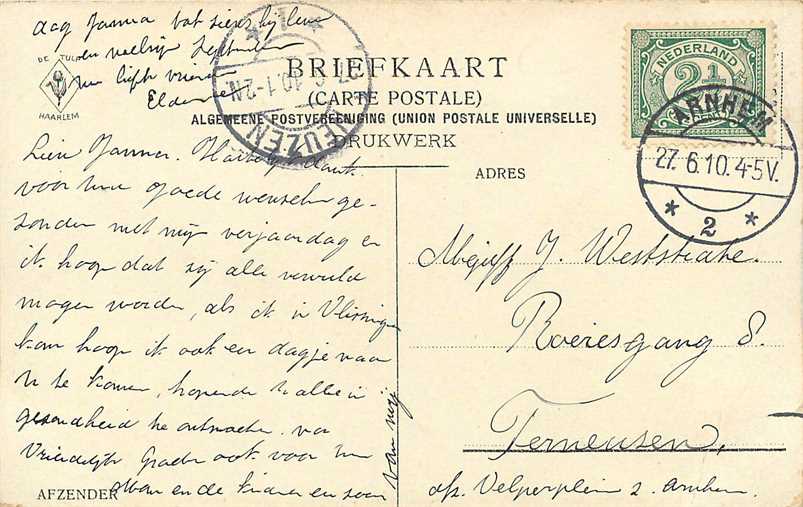 dag Janna tot ziens hij leve
en veel
uw liefh vriendin
DE TULP
HAARLEM
BRIEFKAART
(CARTE POSTALE)
ALGEMEENE POSTVEREENIGING (UNION POSTALE UNIVERSELLE)
DRUKWERK
NEUZEN
27. 6. 10. 1-2 N.
1
NEDERLAND
2½
CENT
ARNHEM
27. 6. 10. 4-5 V.
2
Lieve Janna. Hartelijk dank
voor uw goede wenschen ge-
zonden met mijn verjaardag en
ik hoop dat zij alle vervuld
mogen worden, als ik in Vlissingen
kom hoop ik ook een dagje naar
U te komen, hopende U alle in
gezondheid te ontmoeten. van
Vriendelijk Groeten ook voor uw
man en de kinderen en zoon
van mij
AFZENDER
ADRES
Mejuff J. Weststrate.
Roeiersgang 8.
Terneusen,
afz. Velperplein 2. Arnhem.